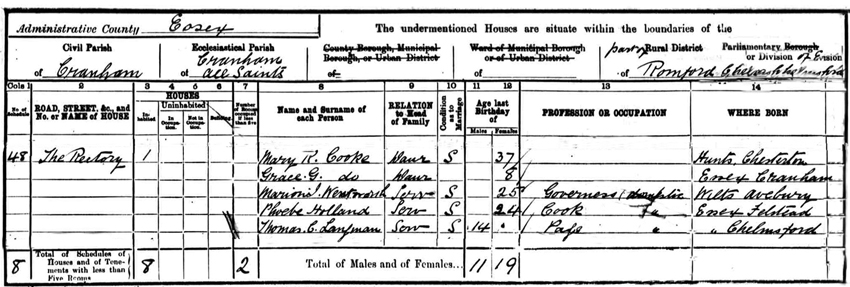 Administrative County Essex The undermentioned Houses are situate within the boundaries of the
Civil Parish Ecclesiastical Parish County Borough, Municipal Borough, or Urban District Ward of Municipal Borough or of Urban District part of Rural District Parliamentary Borough or Division of Essex
of Cranham of Cranham All Saints of of of Romford
Cols 1 2 3 4 5 6 7 8 9 10 11 12 13 14
No. of Schedule ROAD, STREET, &c., and No. or NAME of HOUSE HOUSES Inhabited Uninhabited In Occupation Not in Occupation Building Number of Rooms occupied if less than five Name and Surname of each Person RELATION to Head of Family Condition as to Marriage Age last Birthday of Males Females PROFESSION OR OCCUPATION WHERE BORN
48 The Rectory 1 Mary K. Cooke Daur S 37 Hunts. Chesterton
Grace. G. do Daur 8 Essex Cranham
Marion J. Wentworth Serv S 25 Governess Wilts Avebury
Phoebe Holland Serv S 24 Cook Essex Felstead
Thomas. C. Langman Serv S 14 Page " " Chelmsford
8 Total of Schedules of Houses and of Tenements with less than Five Rooms 8 2 Total of Males and of Females... 11 19